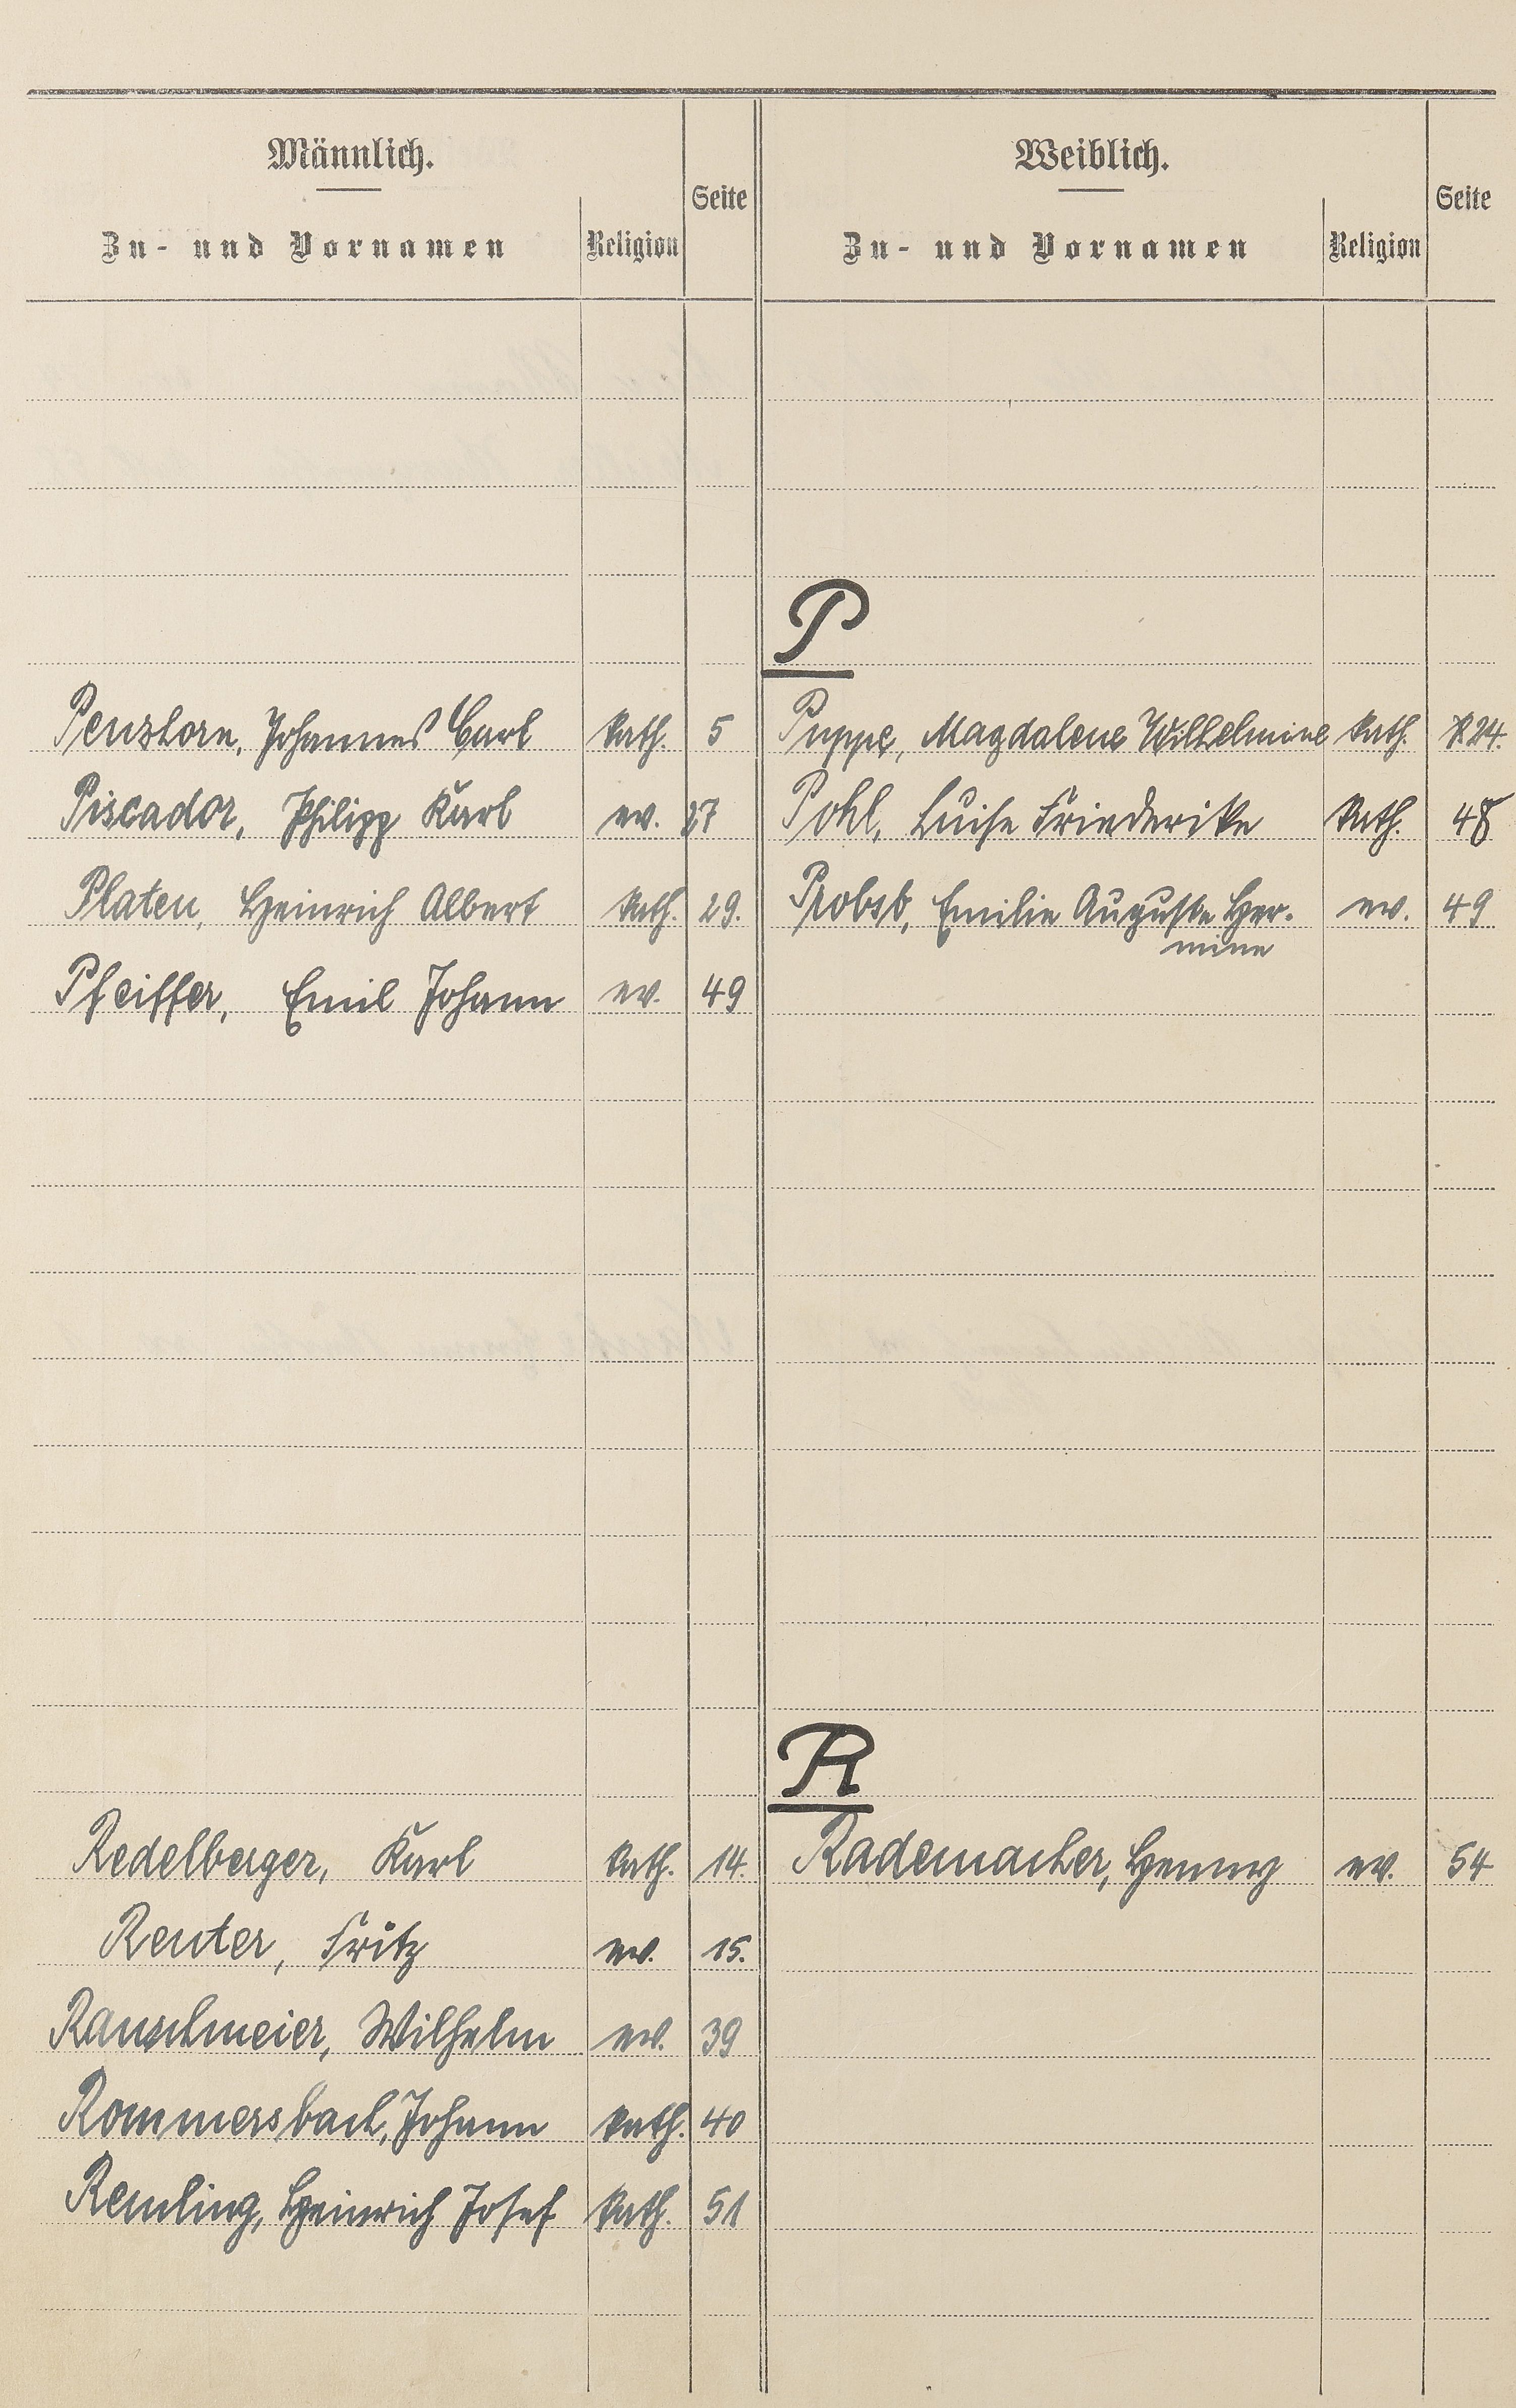 Männlich.
Zu- und Vornamen Religion Seite
Weiblich.
Zu- und Vornamen Religion Seite
P
Penshorn, Johannes Carl kath. 5
Puppe, Magdalene Wilhelmine kath. 24.
Piscador, Philipp Karl ev. 27
Pohl, Luise Friederike kath. 48
Platen, Heinrich Albert kath. 29.
Probst, Emilie Auguste Her-
mine ev. 49
Pfeiffer, Emil Johann ev. 49
R
Redelberger, Karl kath. 14.
Rademacher, Henny ev. 54
Reuter, Fritz ev. 15.
Rauschmeier, Wilhelm ev. 39
Rommersbach, Johann kath. 40
Remling, Heinrich Josef kath. 51